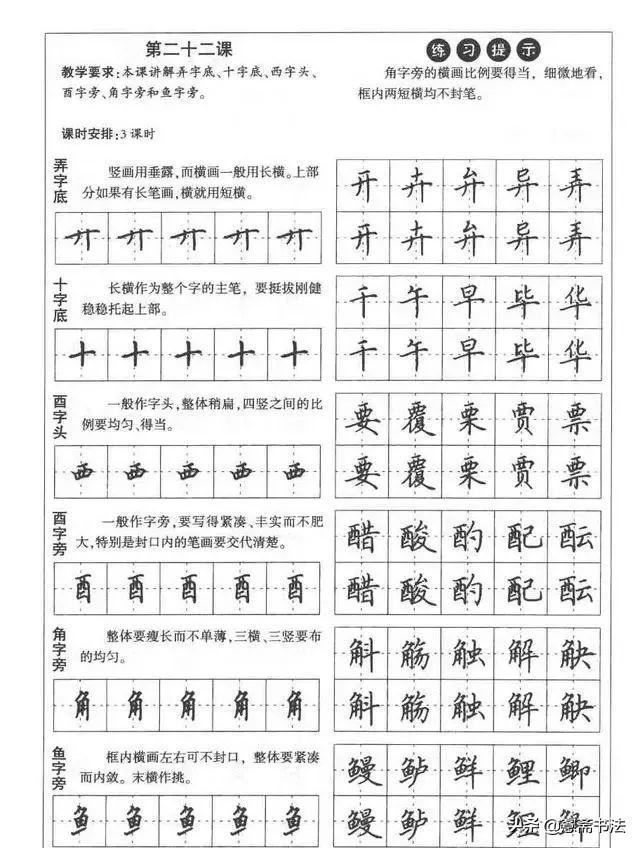 第二十二课
教学要求:本课讲解弄字底、十字底、西字头、
酉字旁、角字旁和鱼字旁。
课时安排:3课时
练习提示
角字旁的横画比例要得当，细微地看，
框内两短横均不封笔。
弄字底
竖画用垂露,而横画一般用长横。上部
分如果有长笔画,横就用短横。
廾 廾 廾 廾 廾
开 卉 弁 异 弄
开 卉 弁 异 弄
十字底
长横作为整个字的主笔，要挺拔刚健
稳稳托起上部。
十 十 十 十 十
千 午 早 毕 华
千 午 早 毕 华
酉字头
一般作字头,整体稍扁,四竖之间的比
例要均匀、得当。
西 西 西 西 西
要 覆 栗 贾 票
要 覆 栗 贾 票
酉字旁
一般作字旁,要写得紧凑、丰实而不肥
大,特别是封口内的笔画要交代清楚。
酉 酉 酉 酉 酉
醋 酸 酌 配 酝
醋 酸 酌 配 酝
角字旁
整体要瘦长而不单薄,三横、三竖要布
的均匀。
角 角 角 角 角
斛 觞 触 解 觖
斛 觞 触 解 觖
鱼字旁
框内横画左右可不封口，整体要紧凑
而内敛。末横作挑。
鱼 鱼 鱼 鱼 鱼
鳗 鲈 鲜 鲤 鲫
鳗 鲈 鲜 鲤 鲫
头条 @愚斋书法